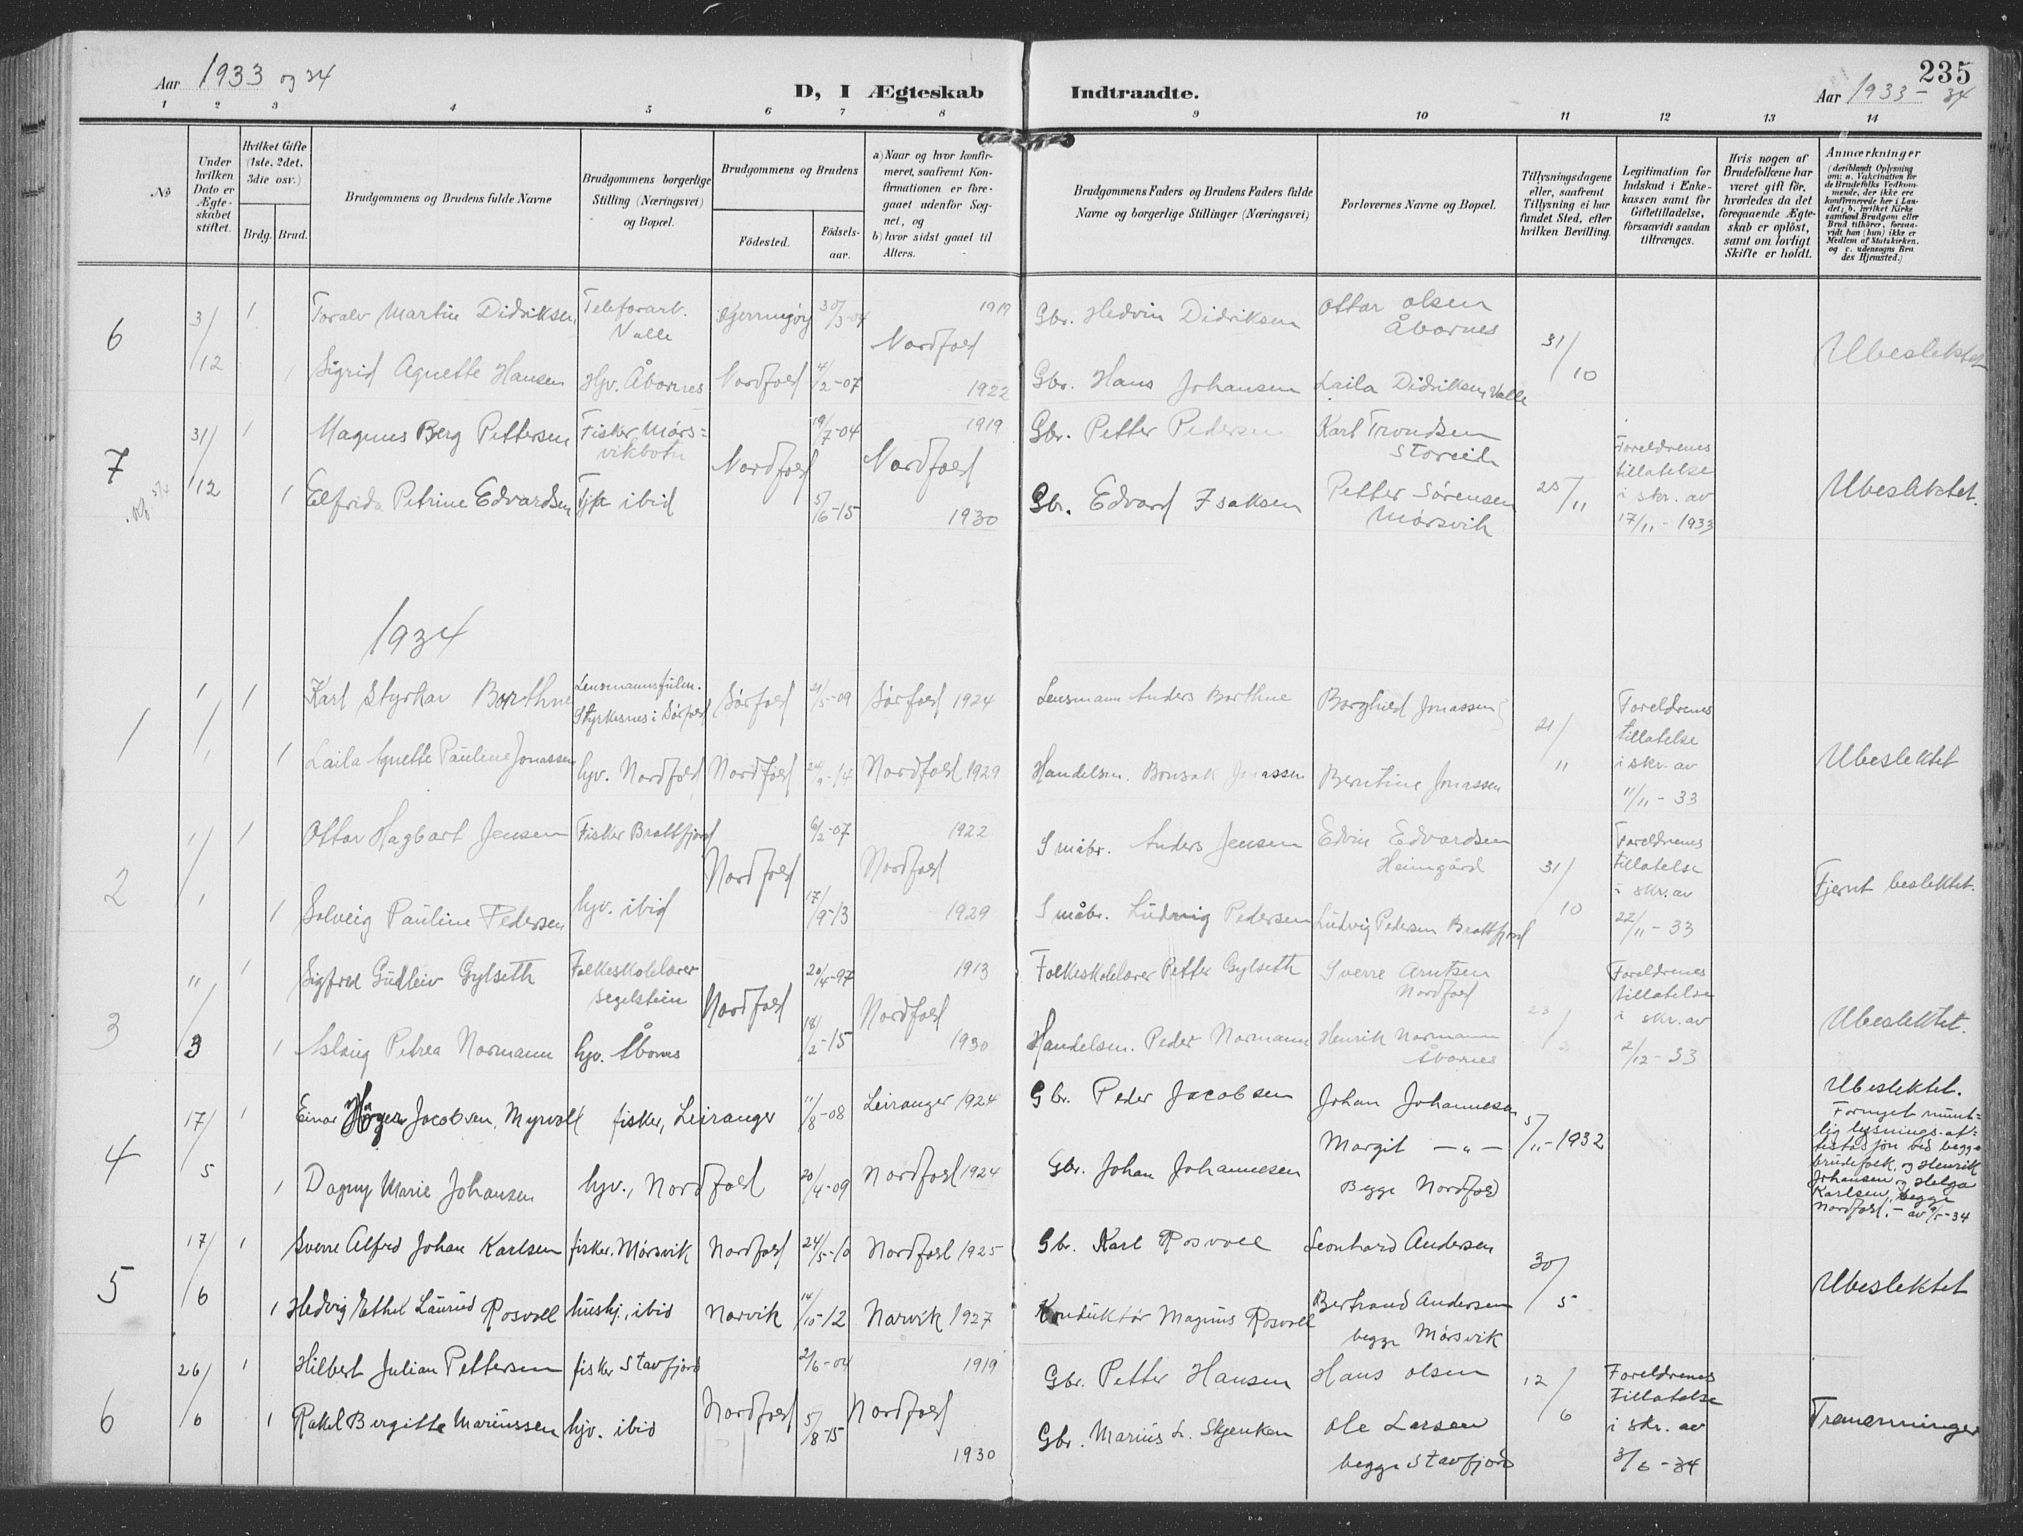 235
Aar 1933 og 34
D, I Ægteskab Indtraadte.
Aar 1933 - 34
1 2 3 4 5 6 7 8 9 10 11 12 13 14
No
Under hvilken Dato er Ægteskabet stiftet.
Hvilket Gifte (1ste, 2det, 3die osv.)
Brdg. Brud.
Brudgommens og Brudens fulde Navne
Brudgommens borgerlige Stilling (Næringsvei) og Bopæl.
Brudgommens og Brudens
Fødested.
Fødselsaar.
a) Naar og hvor konfirmeret, saafremt Konfirmationen er foregaaet udenfor Sognet, og
b) hvor sidst gaaet til Alters.
Brudgommens Faders og Brudens Faders fulde Navne og borgerlige Stillinger (Næringsvei)
Forlovernes Navne og Bopæl.
Tillysningsdagene eller, saafremt Tillysning ei har fundet Sted, efter hvilken Bevilling.
Legitimation for Indskud i Enkekassen samt for Giftetilladelse, forsaavidt saadan tiltrænges.
Hvis nogen af Brudefolkene har været gift før, hvorledes da det foregaaende Ægteskab er opløst, samt om lovligt Skifte er holdt.
Anmærkninger
(deriblandt Oplysning om: a. Vakcination for de Brudefolks Vedkommende, der ikke ere konfirmerede her i Landet; b. hvilket Kirkesamfund Brudgom eller Brud tilhører, forsaavidt han (hun) ikke er Medlem af Statskirken, og c. udensogns Brudes Hjemsted.)
6 3/12 1 Toralv Martin Didriksen Telefonarb. Valle Kjerringøy 30/3-04 1919 Nordfold Gbr. Hedvin Didriksen Ottar Olsen Åbornes 31/10 Ubeslektet
1 Sigrid Agnette Hansen Hjv. Åbornes Nordfold 4/2-07 1922 Gbr. Hans Johansen Laila Didriksen Valle
7 31/12 1 Magnus Berg Pettersen Fisker Mørsvikbotn Nordfold 19/7-04 1919 Nordfold Gbr. Petter Pedersen Karl Trondsen Storeid 25/11 Foreldrenes tillatelse i skr. av 17/11-1933 Ubeslektet.
1 Elfrida Petrine Edvardsen ibid 5/6-15 1930 Gbr. Edvard Isaksen Petter Sørensen Mørsvik
1934
1 1/1 1 Karl Styrkar Barthne Lensmannsfulm. Styrkesnes i Sørfold Sørfold 21/5-09 Sørfold 1924 Lensmann Anders Barthne Borghild Jonassen 21/11 Foreldrenes tillatelse i skr. av 11/11-33 Ubeslektet
1 Laila Agnette Pauline Jonassen hjv. Nordfold Nordfold Nordfold 1929 Handelsm. Bonsak Jonassen Berntine Jonassen
2 1/1 1 Ottar Hagbart Jensen Fisker Brattfjord Nordfold 6/2-07 1922 Nordfold Småbr. Anders Jensen Edvin Edvardsen Heimgård 31/10 Foreldrenes tillatelse i skr. av 22/11-33 Fjernt beslektet.
1 Solveig Pauline Pedersen hjv. ibid 17/9-13 1929 Småbr. Ludvig Pedersen Ludvig Pedersen Brattfjord
3 11/3 1 Sigfred Gudleiv Gylseth Folkeskolelærer Segelstein Nordfold 20/4-97 1913 Nordfold Folkeskolelærer Petter Gylseth Sverre Arntsen Nordfold Foreldrenes tillatelse i skr. av 2/12-33 Ubeslektet.
1 Aslaug Petrea Normann hjv. Åbornes 18/2-15 1930 Handelsm. Peder Normann Henrik Normann Åbornes
4 17/5 1 Einar Jacobsen Myrvoll fisker, Leiranger 11/8-08 Leiranger 1924 Gbr. Peder Jacobsen Johan Johannesen 5/11-1932 Ubeslektet. Fornyet muntlig lysnings-attestasjon ved begge brudefolk, og Henrik Johansen og Helga Karlsen, begge Nordfold. - av 9/5-34
1 Dagny Marie Johansen hjv., Nordfold 20/4-09 Nordfold 1924 Gbr. Johan Johannesen Margit - " - Begge Nordfold
5 17/6 1 Sverre Alfred Johan Karlsen fisker, Mørsvik Nordfold 24/5-10 Nordfold 1925 Gbr. Karl Rosvoll Leonhard Andersen 30/5 Ubeslektet
1 Hedvig Ethel Laurud Rosvoll hushj., ibid Narvik 14/10-12 Narvik 1927 Konduktør Magnus Rosvoll Bertrand Andersen begge Mørsvik
6 26/6 1 Hilbert Julian Pettersen fisker Stavfjord Nordfold 2/6-04 1919 Nordfold Gbr. Petter Hansen Hans Olsen 12/6 Foreldrenes Tillatelse i skr. av 3/6-34 Tremenninger
1 Rakel Bergitte Mariussen hjv. ibid 5/8-15 1930 Gbr. Marius L. Skjenken Ole Larsen begge Stavfjord